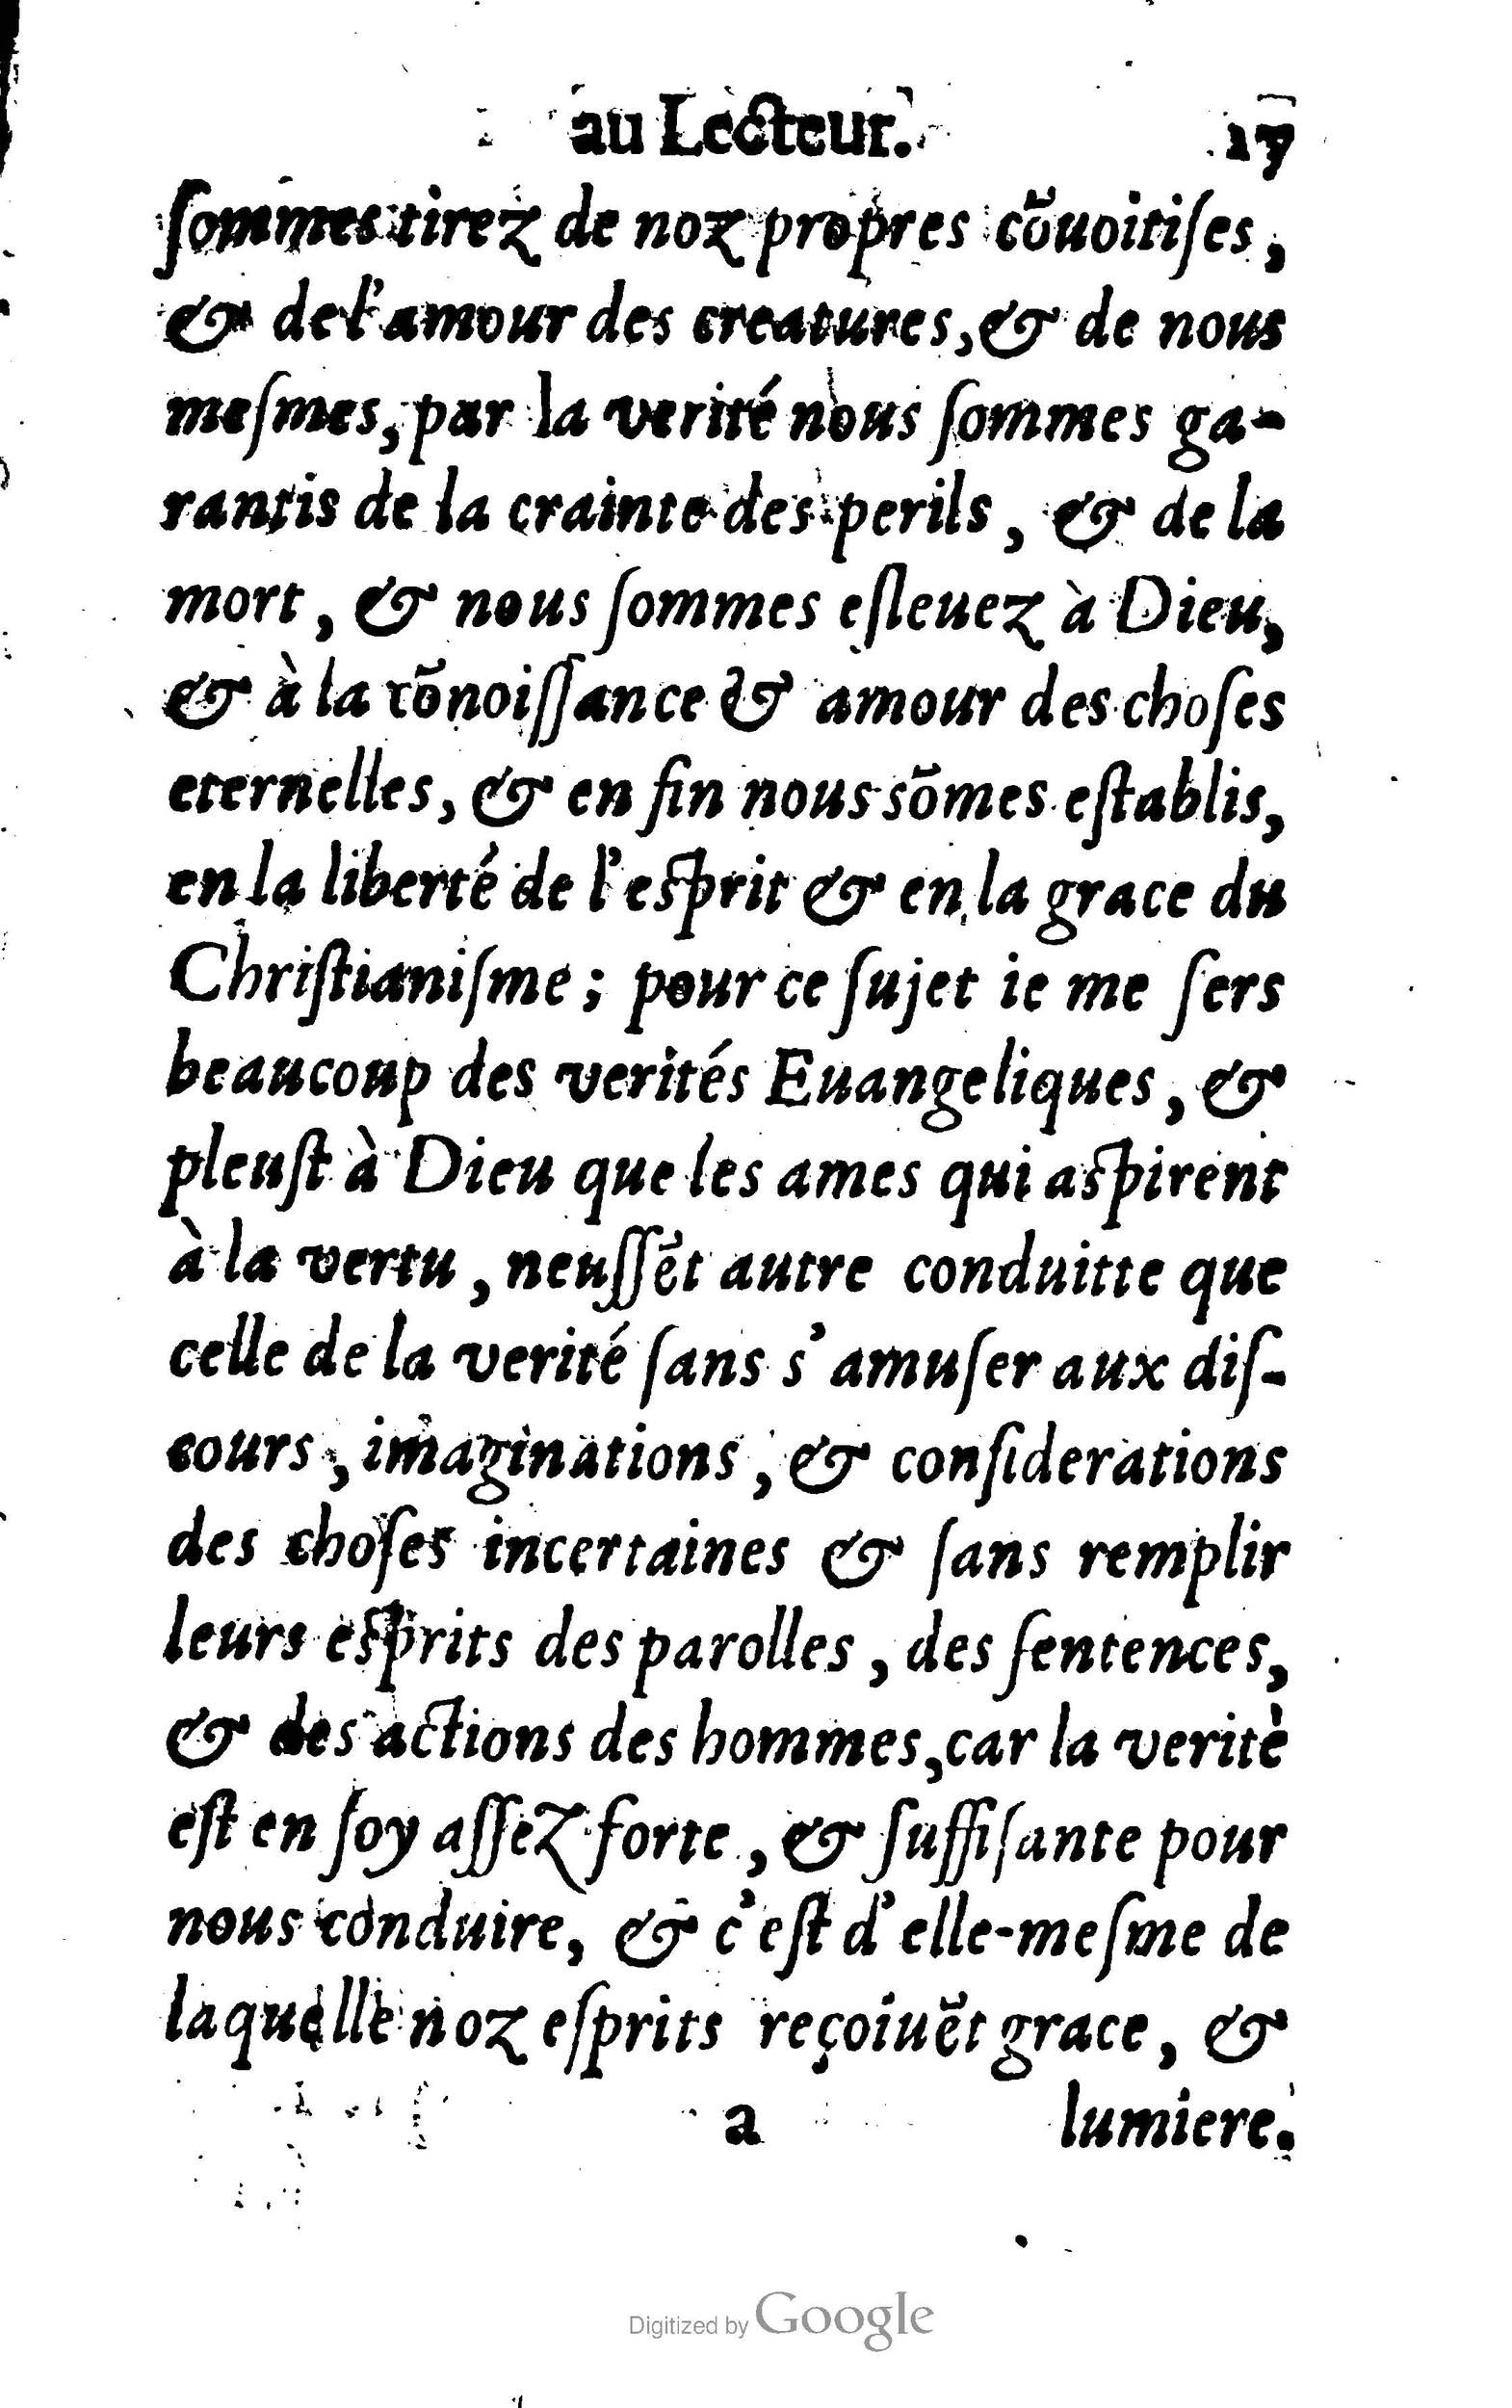 au Lecteur. 17
ſommes tirez de noz propres cõuoitiſes,
& de l'amour des creatures, & de nous
meſmes, par la verité nous ſommes ga-
rantis de la crainte des perils, & de la
mort, & nous ſommes eſleuez à Dieu,
& à la cõnoiſſance & amour des choſes
eternelles, & en fin nous sõmes eſtablis,
en la liberté de l'esprit & en la grace du
Chriſtianiſme; pour ce ſujet ie me ſers
beaucoup des verités Euangeliques, &
pleuſt à Dieu que les ames qui aspirent
à la vertu, neuſſẽt autre conduitte que
celle de la verité ſans s'amuſer aux diſ-
cours, imaginations, & conſiderations
des choſes incertaines & ſans remplir
leurs esprits des parolles, des ſentences,
& des actions des hommes, car la veritè
eſt en ſoy aſſez forte, & ſuffiſante pour
nous conduire, & c'eſt d'elle-meſme de
laquelle noz eſprits reçoiuẽt grace, &
a lumiere.
Digitized by Google